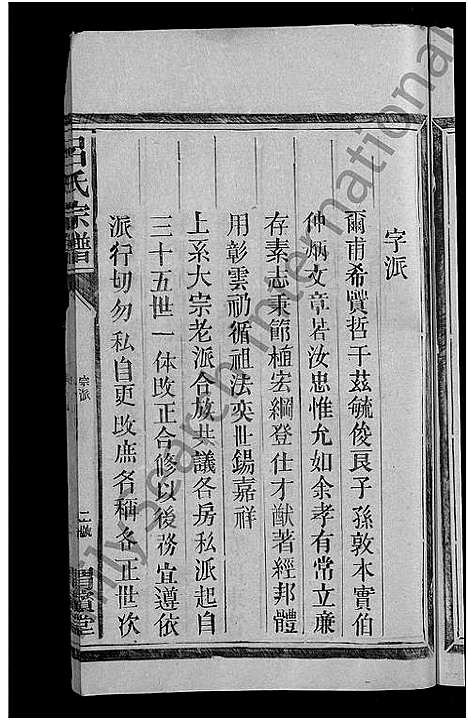 字派
爾甫希賢哲于茲毓俊良子孫敦本實伯
仲炳文章若汝忠惟允如余孝有常立廉
存素志秉節植宏綱登仕才猷著經邦體
用彰雲礽循祖法奕世錫嘉祥
上系大宗老派合族共議各房私派起自
三十五世一体改正合修以後務宜遵依
派行切勿私自更改庶名稱各正世次
呂氏宗譜
字派
二
FamilySearch International